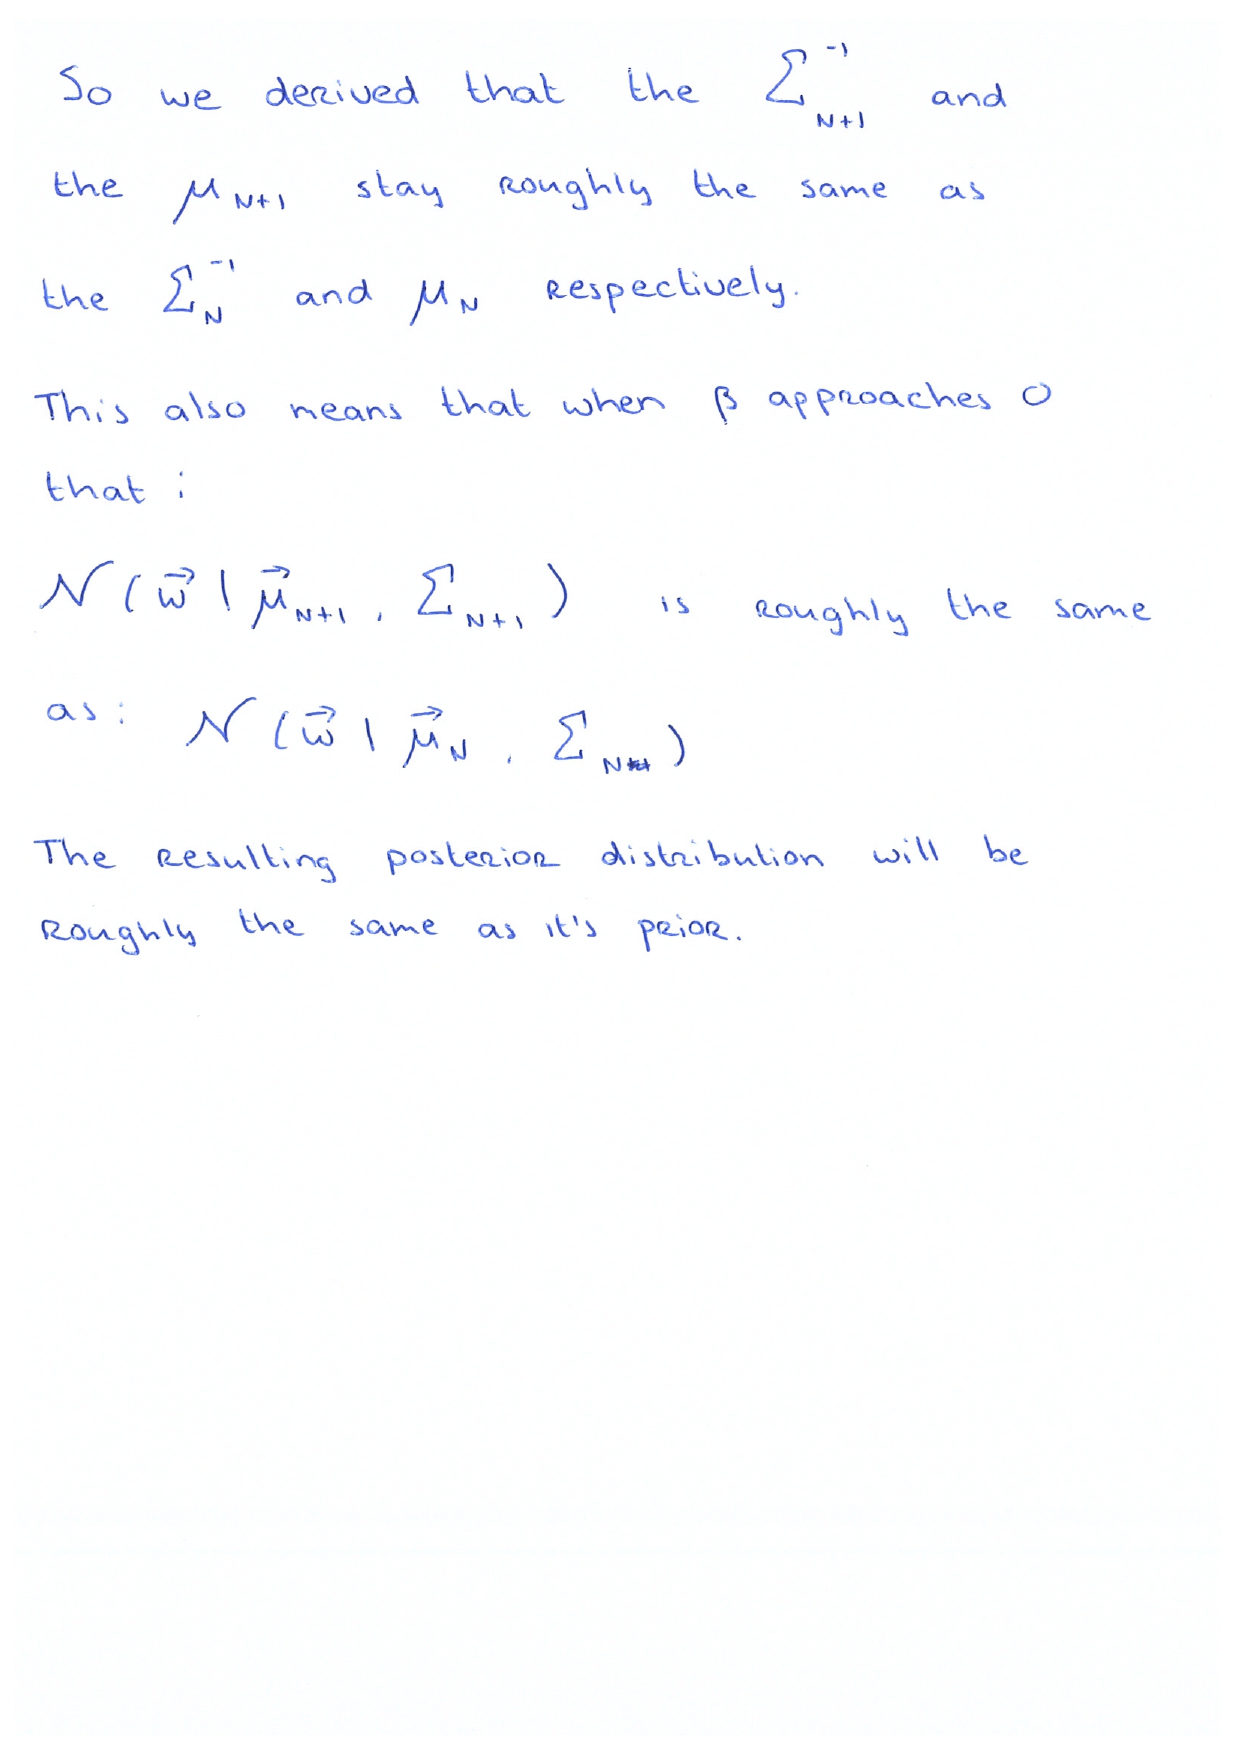 So we derived that the Σ⁻¹_{N+1} and
the μ_{N+1} stay roughly the same as
the Σ⁻¹_N and μ_N respectively.
This also means that when β approaches 0
that :
N(w⃗ | μ⃗_{N+1}, Σ_{N+1}) is roughly the same
as: N(w⃗ | μ⃗_N, Σ_N)
The resulting posterior distribution will be
roughly the same as it's prior.